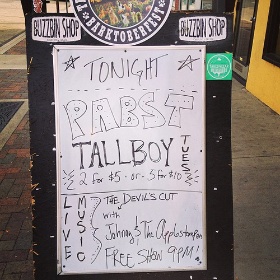 BUZZBIN SHOP
BARKTOBERFEST
BUZZBIN SHOP
TONIGHT
PABST
TALLBOY
TUES
2 for $5 - or - 5 for $10
LIVE MUSIC
THE DEVIL'S CUT
with
Johnny & The Applestompers
FREE SHOW 9PM!